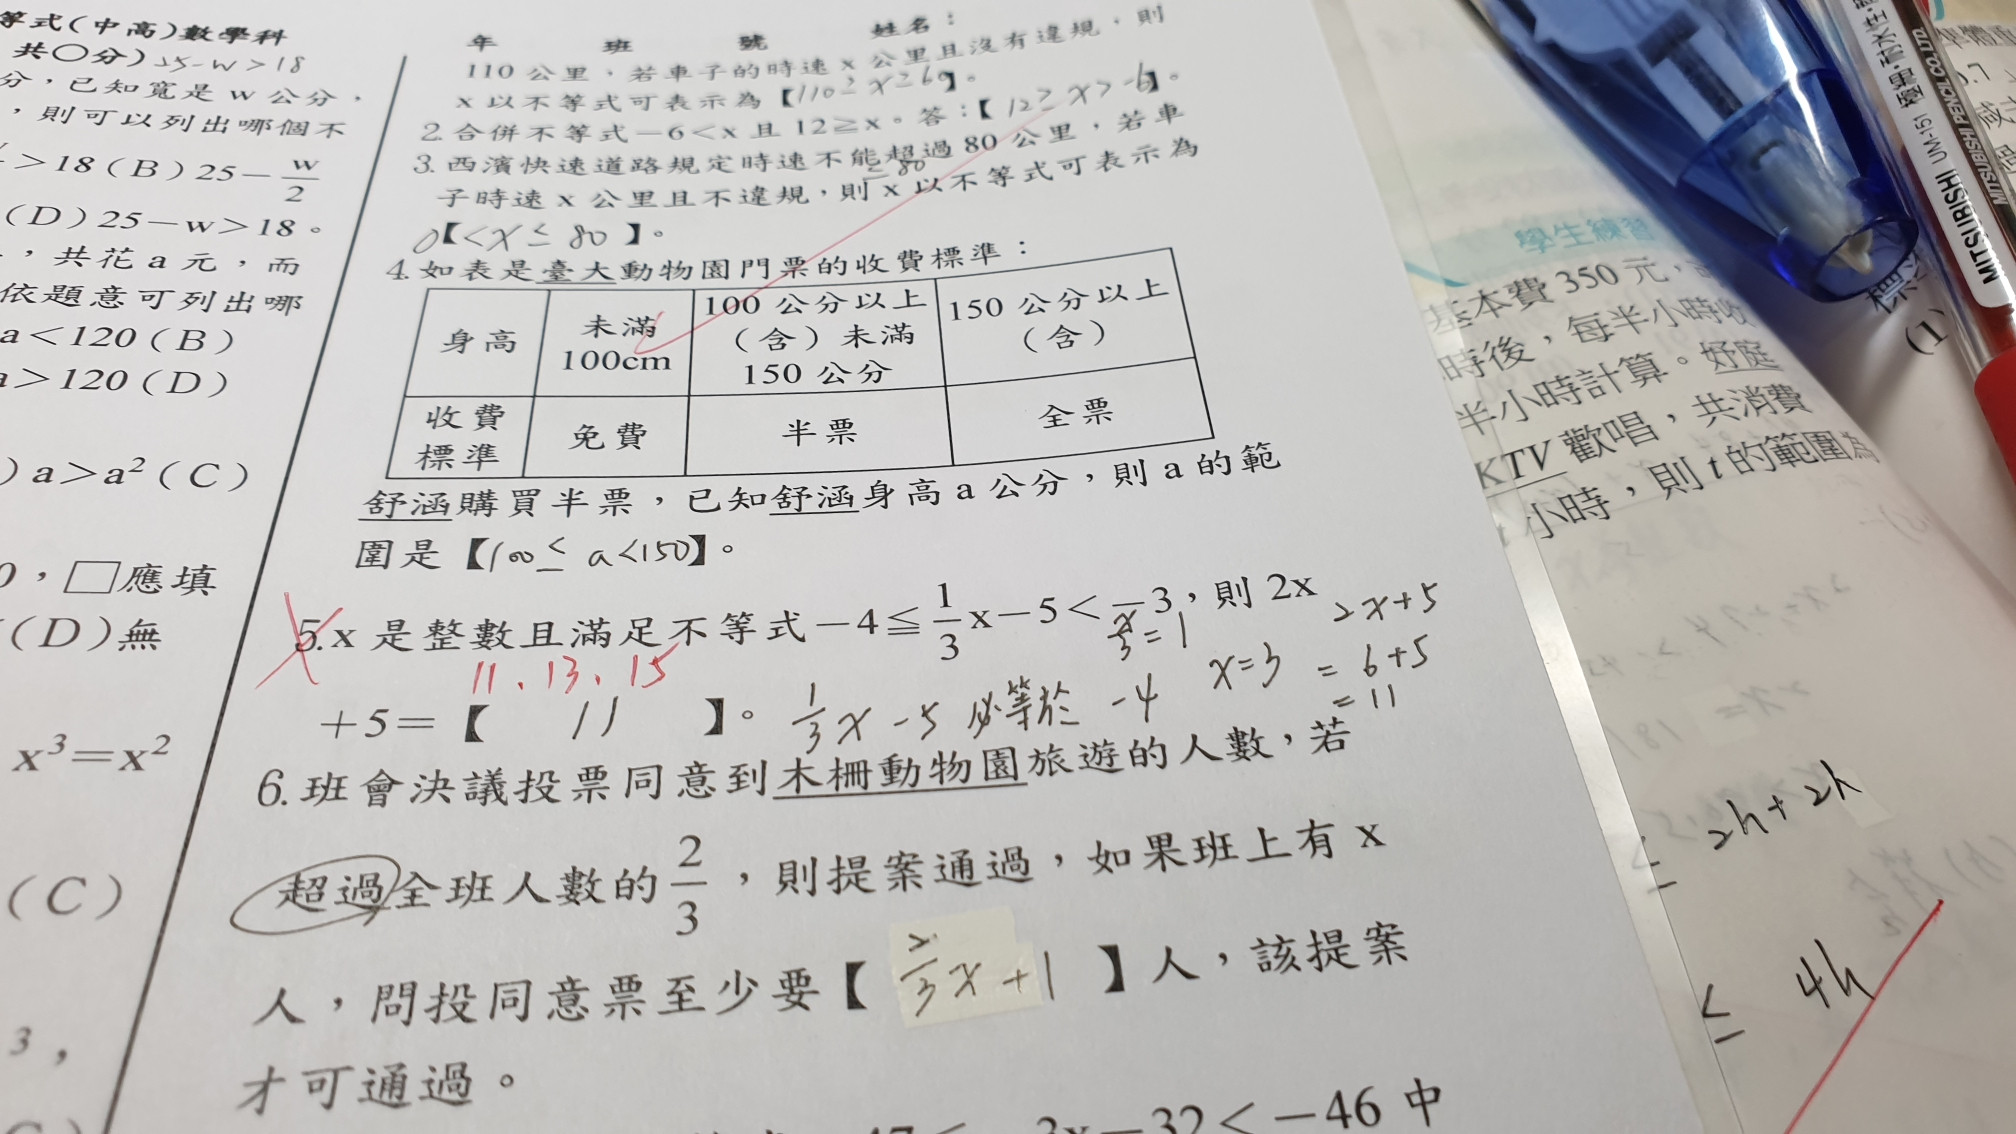 等式(中高)數學科
共〇分) 25-w>18
分，已知寬是 w 公分，
，則可以列出哪個不
>18(B)25－w/2
(D)25－w>18。
，共花 a 元，而
依題意可列出哪
a＜120(B)
a＞120(D)
)a＞a²(C)
0，□應填
(D)無
x³＝x²
(C)
3，
年 班 號 姓名：
110 公里，若車子的時速 x 公里且沒有違規，則
x 以不等式可表示為【110≥x≥60】。
2.合併不等式－6＜x 且 12≧x。答：【12≥x>-6】。
3.西濱快速道路規定時速不能超過 80 公里，若車
≤80
子時速 x 公里且不違規，則 x 以不等式可表示為
0【<x≤80】。
4.如表是臺大動物園門票的收費標準：
身高 未滿100cm 100 公分以上(含)未滿150 公分 150 公分以上(含)
收費標準 免費 半票 全票
舒涵購買半票，已知舒涵身高 a 公分，則 a 的範
圍是【100≤a<150】。
5.x 是整數且滿足不等式－4≦1/3x－5＜－3，則 2x
x/3=1 2x+5
11、13、15 x=3 =6+5
＋5＝【11】。 1/3x-5 必等於 -4 =11
6.班會決議投票同意到木柵動物園旅遊的人數，若
超過全班人數的2/3，則提案通過，如果班上有 x
人，問投同意票至少要【2/3x+1】人，該提案
才可通過。
3x－32＜－46 中
學生練習
基本費 350 元，
時後，每半小時收
半小時計算。好庭
KTV 歡唱，共消費
小時，則 t 的範圍為
≤ 2h+2h
≤ 4h
(1)
MITSUBISHI UM-151 極細・耐水性
MITSUBISHI PENCIL CO.,LTD.